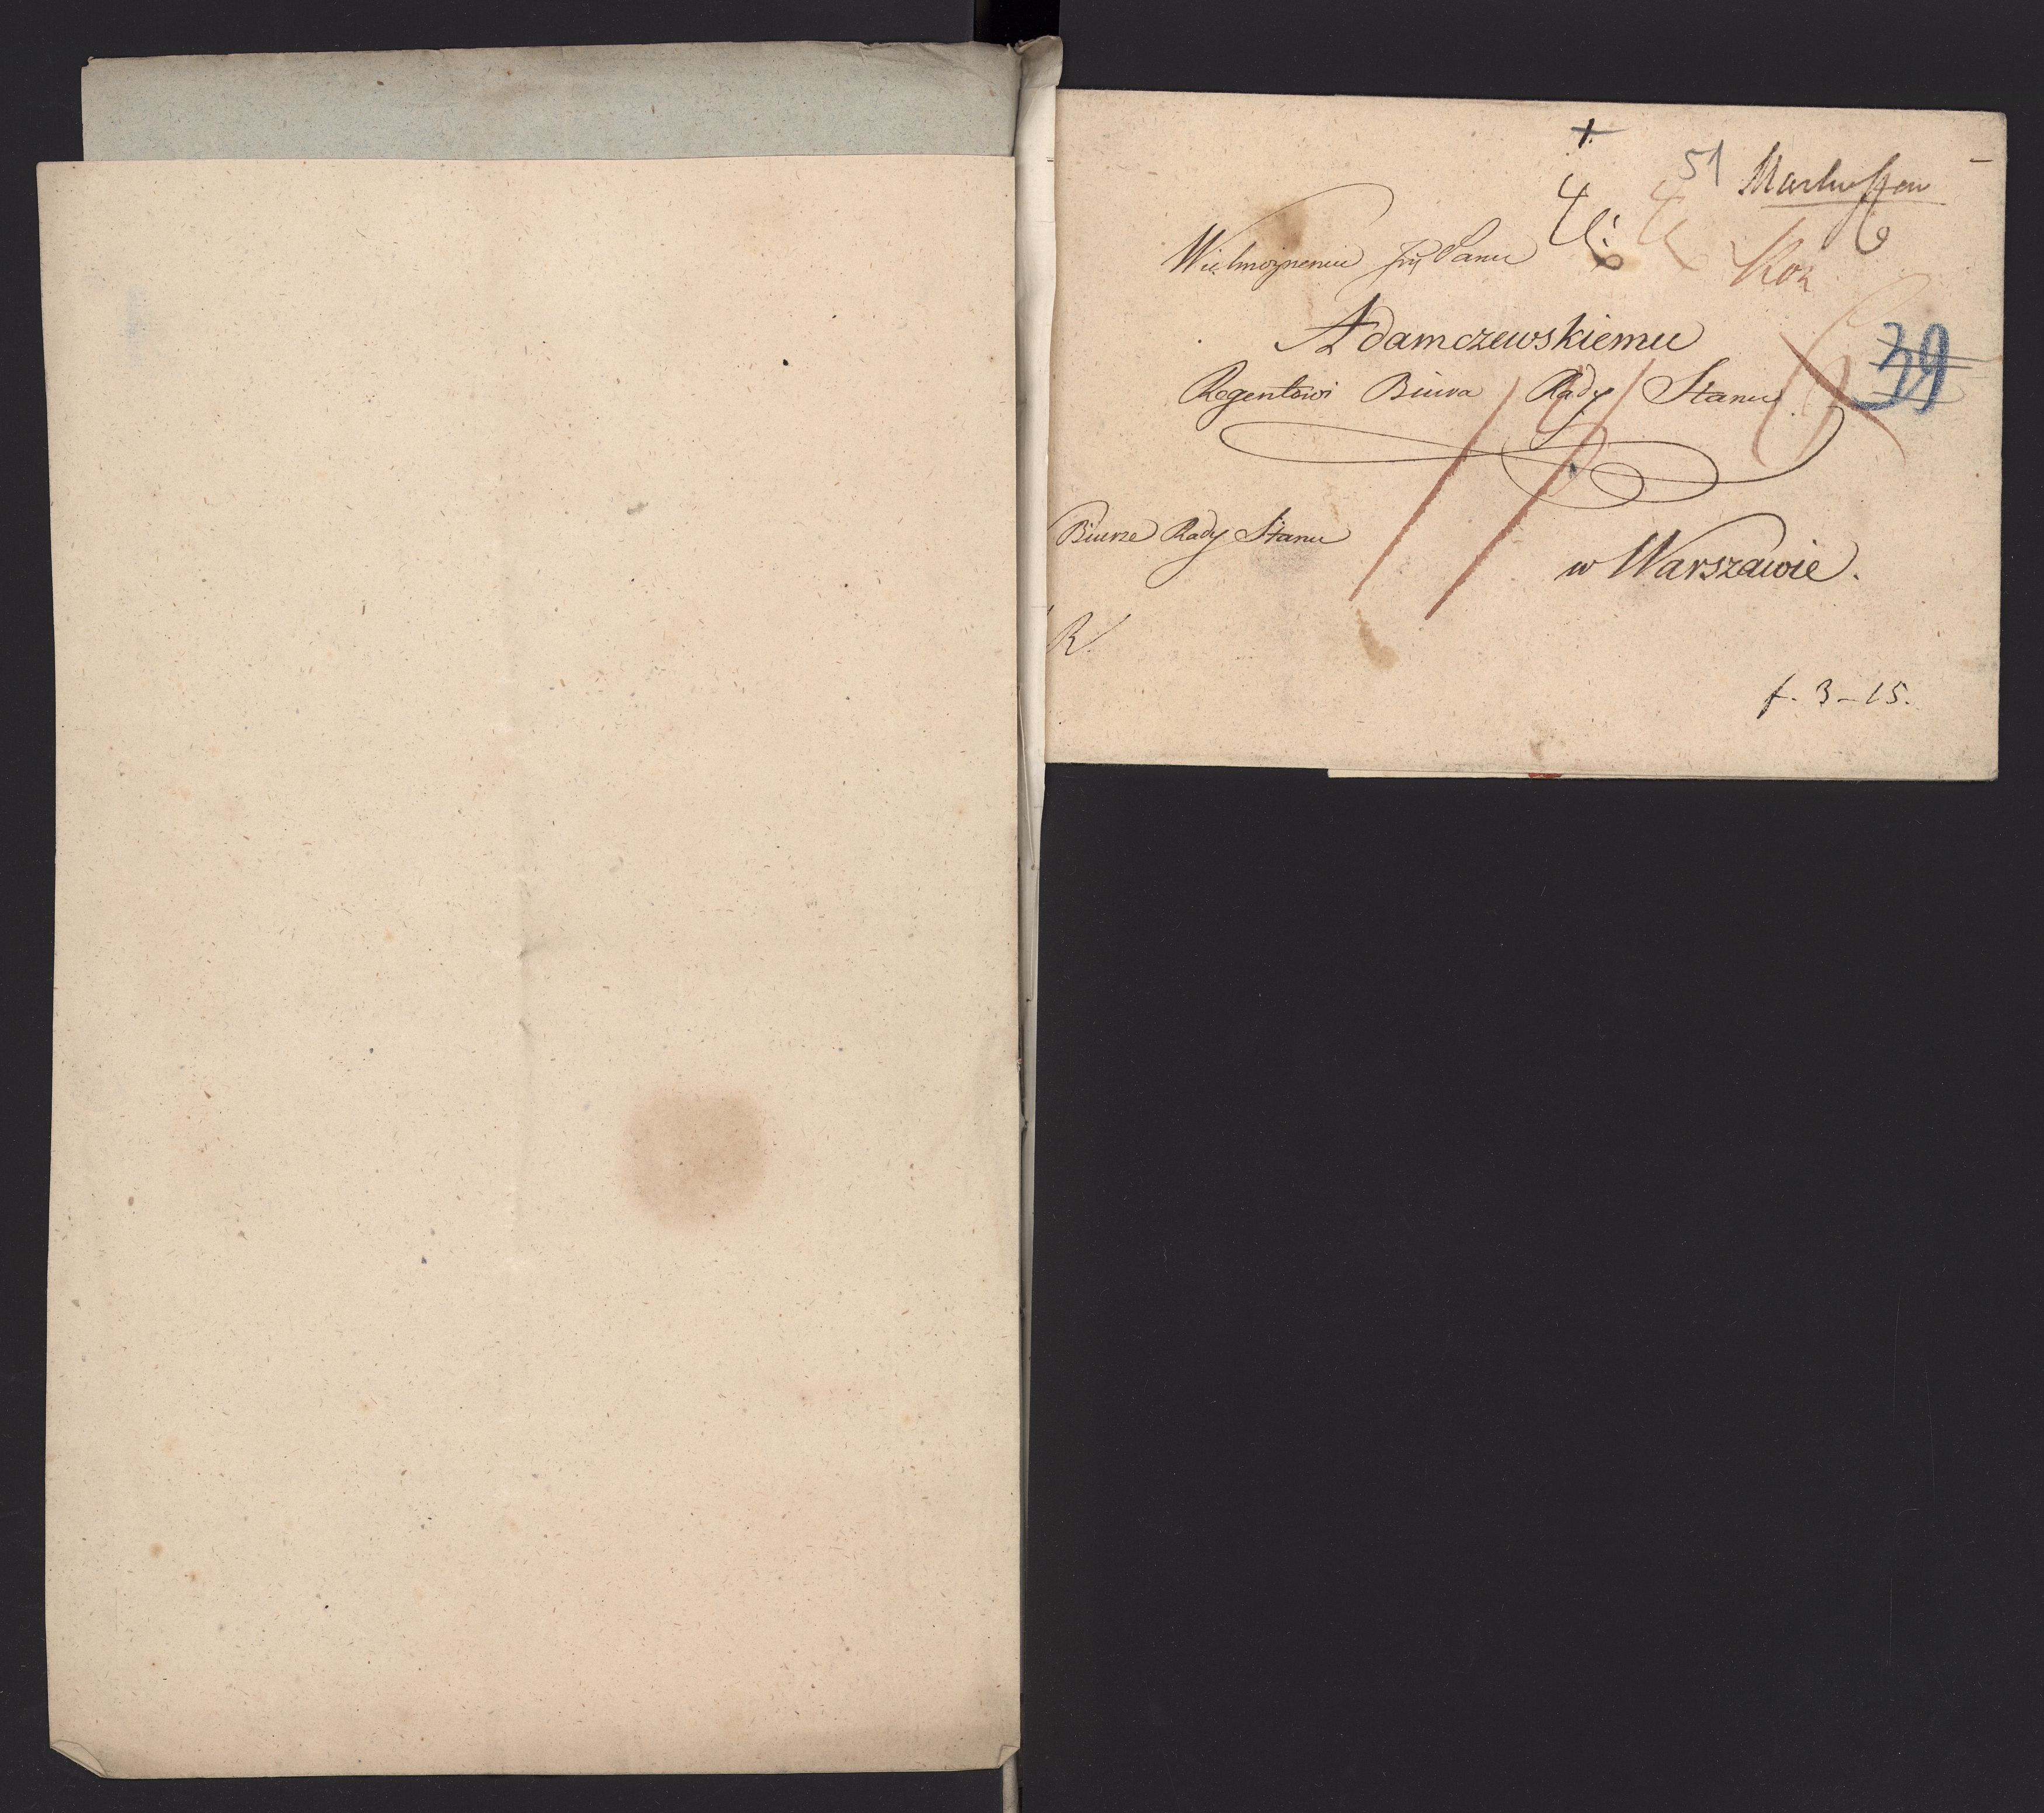 51
Wielmożnemu Jmć Panu
Adamczewskiemu
Regentowi Biura Rady Stanu.
39
Biurze Rady Stanu
w Warszawie.
R.
f. 3-15.